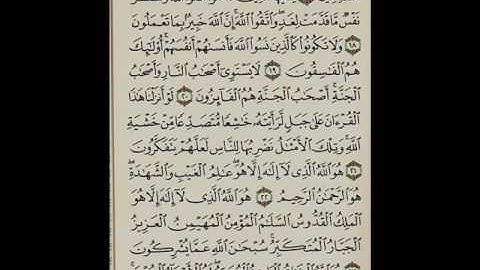 نَفْسٌ مَّا قَدَّمَتْ لِغَدٍ ۖ وَٱتَّقُوا۟ ٱللَّهَ ۚ إِنَّ ٱللَّهَ خَبِيرٌۢ بِمَا تَعْمَلُونَ
١٨ وَلَا تَكُونُوا۟ كَٱلَّذِينَ نَسُوا۟ ٱللَّهَ فَأَنسَىٰهُمْ أَنفُسَهُمْ ۚ أُو۟لَٰٓئِكَ
هُمُ ٱلْفَٰسِقُونَ ١٩ لَا يَسْتَوِىٓ أَصْحَٰبُ ٱلنَّارِ وَأَصْحَٰبُ
ٱلْجَنَّةِ ۚ أَصْحَٰبُ ٱلْجَنَّةِ هُمُ ٱلْفَآئِزُونَ ٢٠ لَوْ أَنزَلْنَا هَٰذَا
ٱلْقُرْءَانَ عَلَىٰ جَبَلٍ لَّرَأَيْتَهُۥ خَٰشِعًا مُّتَصَدِّعًا مِّنْ خَشْيَةِ
ٱللَّهِ ۚ وَتِلْكَ ٱلْأَمْثَٰلُ نَضْرِبُهَا لِلنَّاسِ لَعَلَّهُمْ يَتَفَكَّرُونَ
٢١ هُوَ ٱللَّهُ ٱلَّذِى لَآ إِلَٰهَ إِلَّا هُوَ ۖ عَٰلِمُ ٱلْغَيْبِ وَٱلشَّهَٰدَةِ ۖ
هُوَ ٱلرَّحْمَٰنُ ٱلرَّحِيمُ ٢٢ هُوَ ٱللَّهُ ٱلَّذِى لَآ إِلَٰهَ إِلَّا هُوَ
ٱلْمَلِكُ ٱلْقُدُّوسُ ٱلسَّلَٰمُ ٱلْمُؤْمِنُ ٱلْمُهَيْمِنُ ٱلْعَزِيزُ
ٱلْجَبَّارُ ٱلْمُتَكَبِّرُ ۚ سُبْحَٰنَ ٱللَّهِ عَمَّا يُشْرِكُونَ